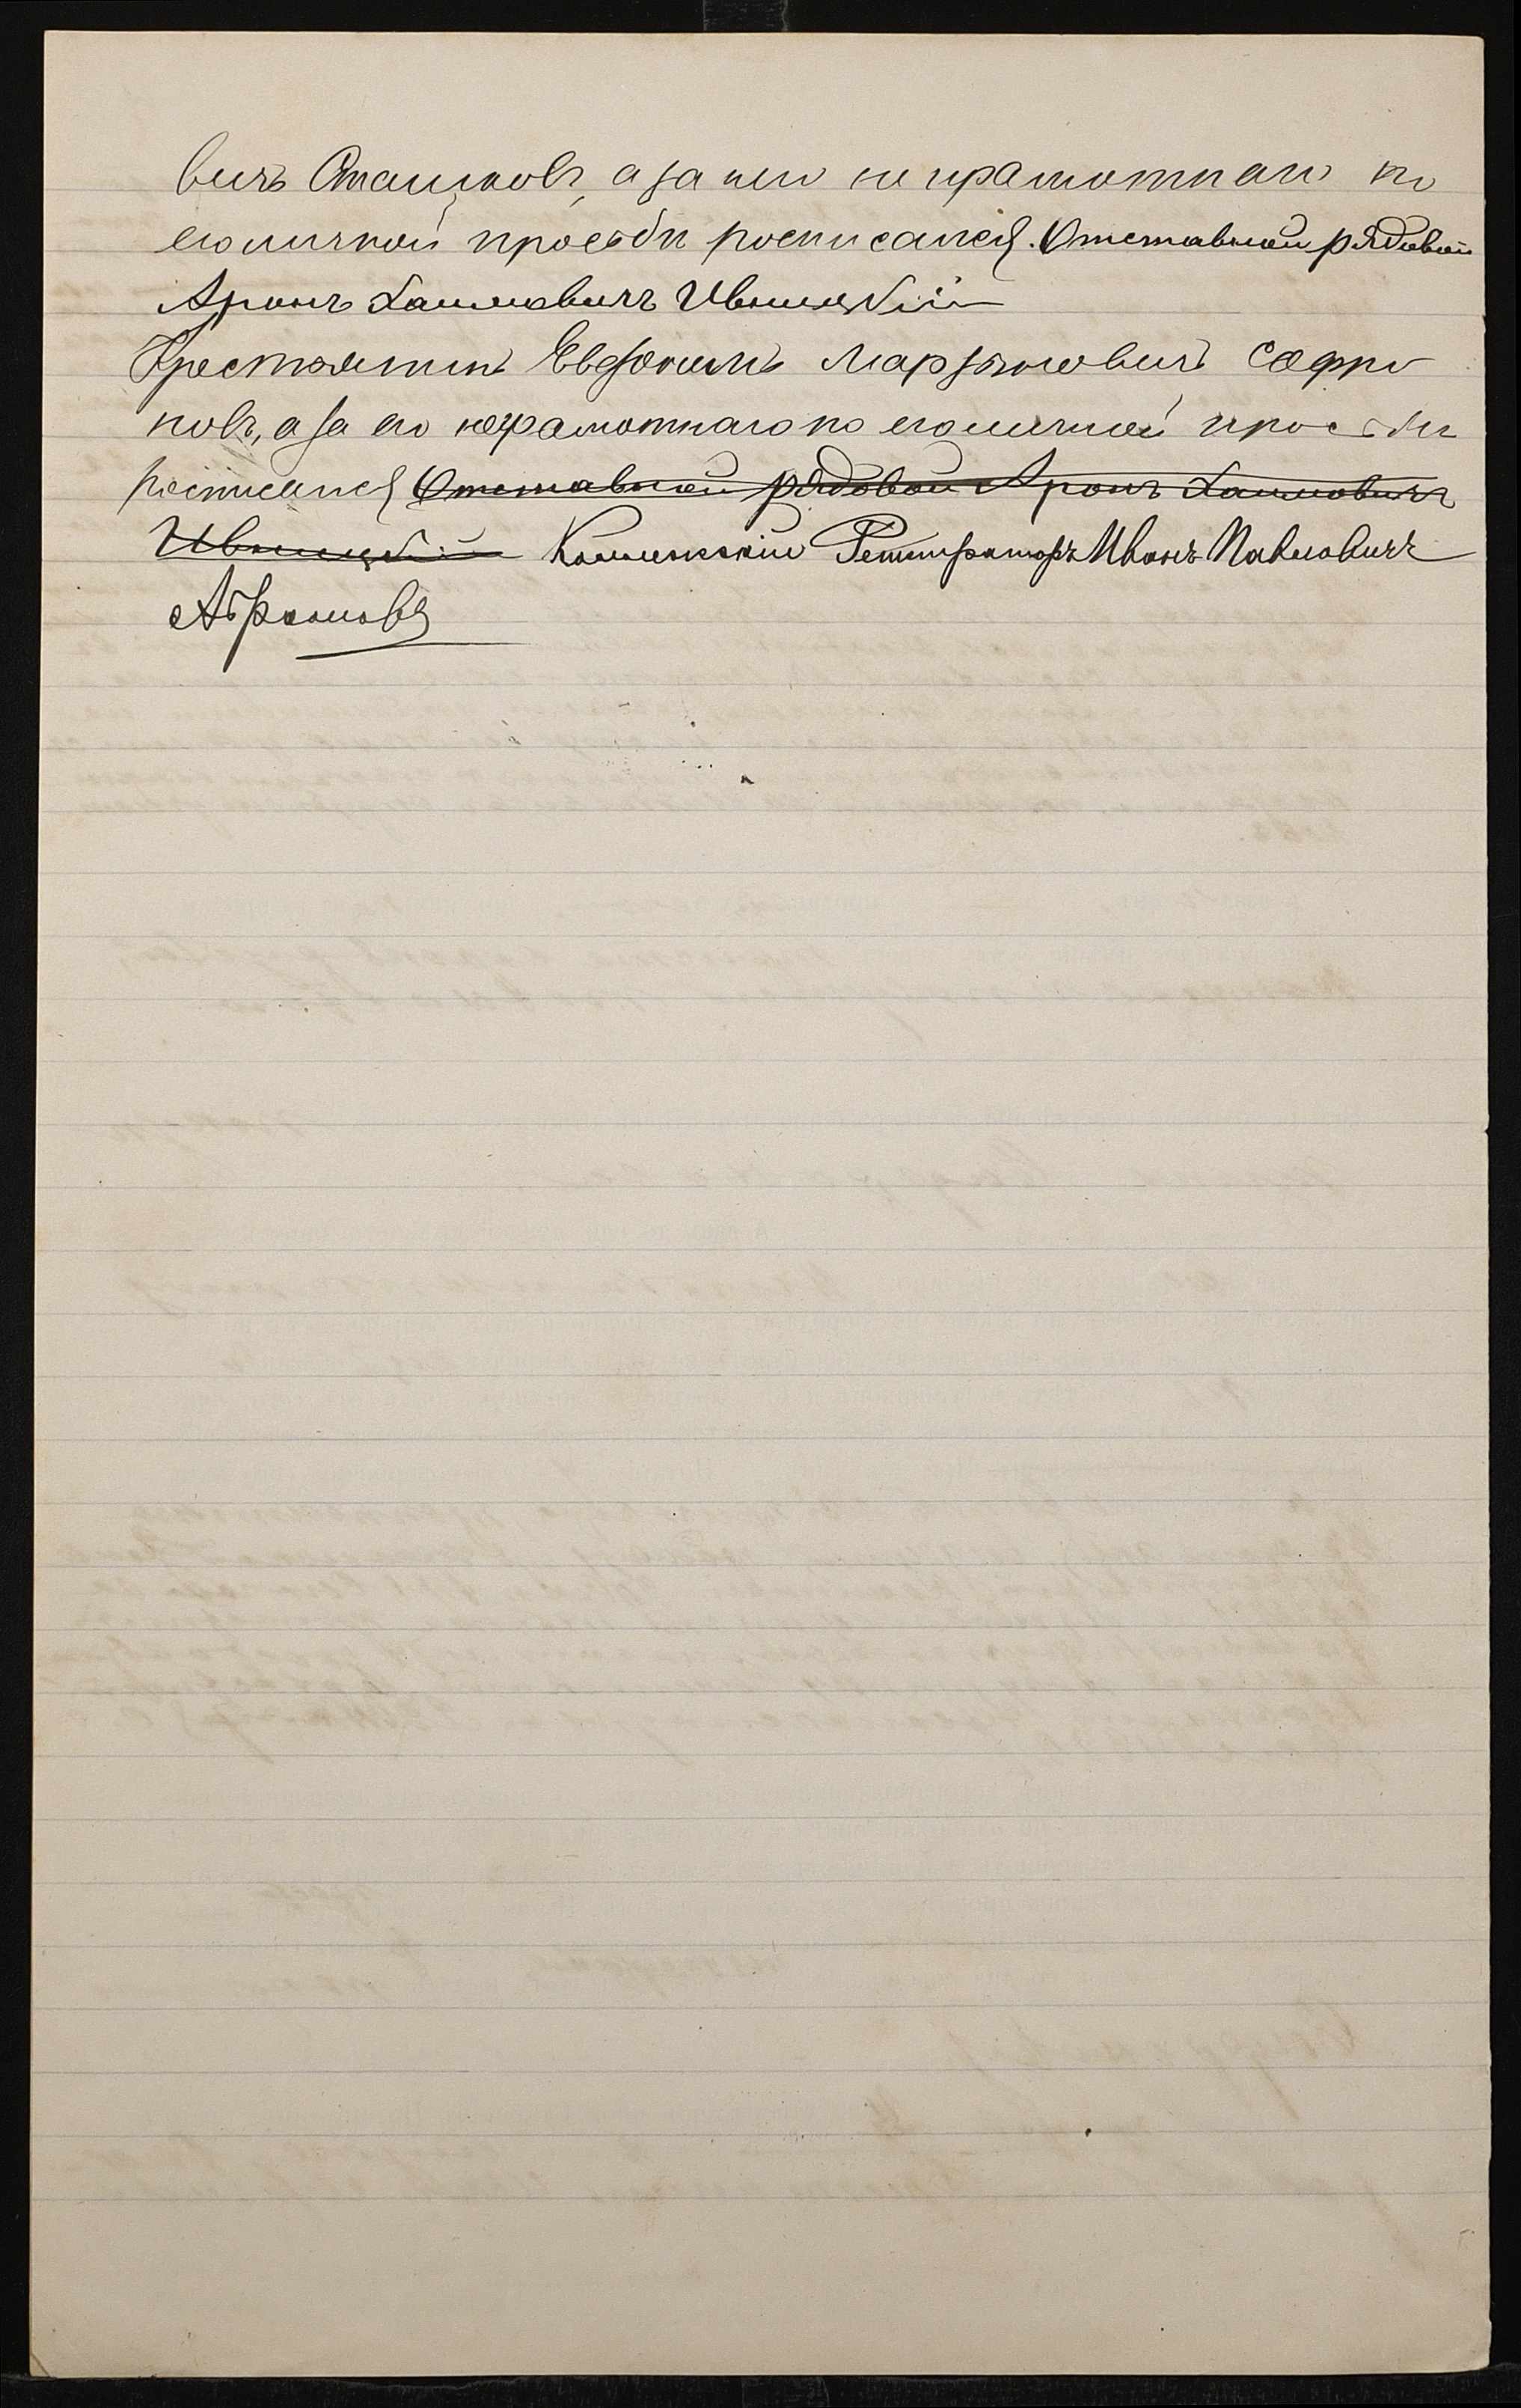 вичъ Сташковъ, а за него неграмотнаго по
его личной прозьби росписался. Отставной рядовой
Аронъ Хаимовичъ Ивницкій
Крестьянинъ Евдокимъ Марзяновичъ Софро
новъ, а за его неграмотнаго по его личной прозьби
росписался Отставной рядовой Аронъ Хаимовичъ
Ивницкій Коллежскій Регистраторъ Иванъ Павловичъ
Абрамовъ